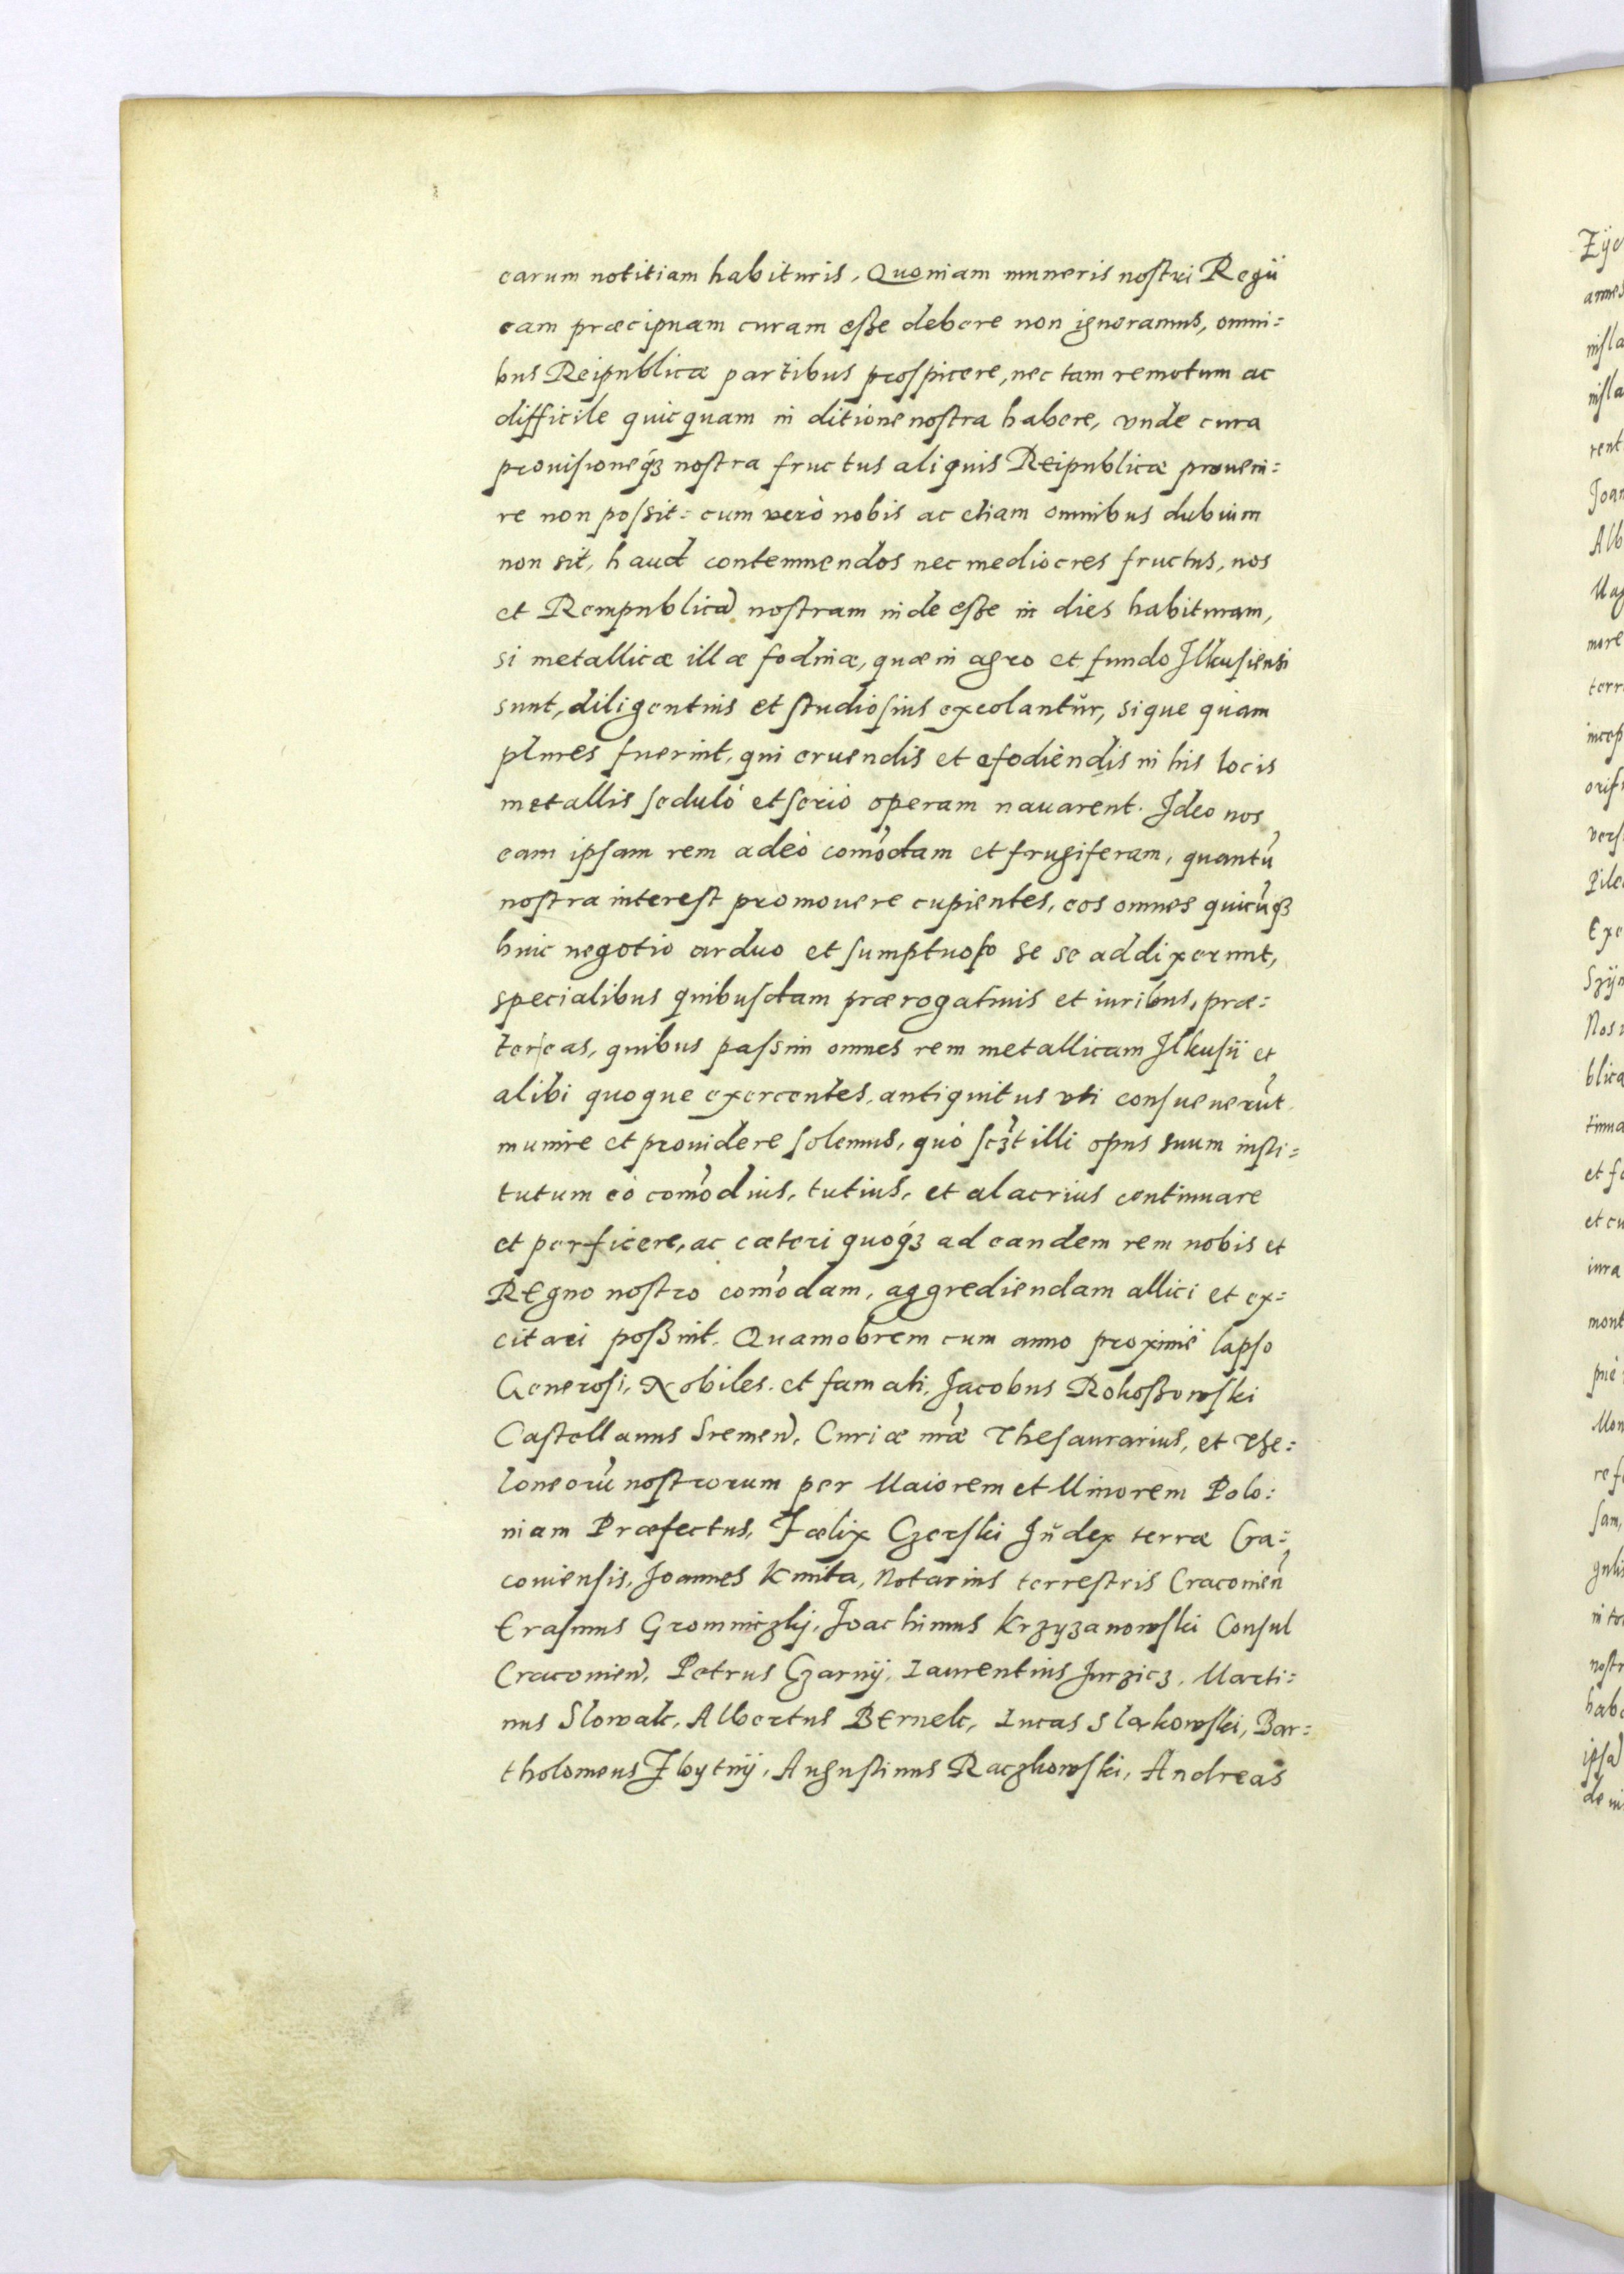 earum notitiam habituris, Quoniam muneris nostri Regij
eam præcipuam curam eße debere non ignoramus, omni=
bus Reipublicæ partibus prospicere, nec tam remotum ac
difficile quicquam in ditione nostra habere, vnde cura
prouisioneq́ꝫ nostra fructus aliquis Reipublicæ proueni=
re non possit: cum verò nobis ac etiam omnibus dubium
non sit, haud contemnendos nec mediocres fructus, nos
et Rempublicã nostram inde eße in dies habituram,
si metallicæ illæ fodinæ, quæ in agro et fundo Ilkusiensi
sunt, diligentius et studiosius excolantŭr, sique quàm
plures fuerint, qui eruendis et efodiendis in his locis
metallis seduló et serió operam nauarent. Ideo nos
eam ipsam rem adeò com̃odam et frugiferam, quantũ
nostra interest promouere cupientes, eos omnes quicũqꝫ
huic negotio arduo et sumptuoso se se addixerunt,
specialibus quibusdam prærogatiuis et iuribus, præ=
ter eas, quibus passim omnes rem metallicam Ilkusij et
alibi quoque exercentes, antiquitus vti consueuerũt
munire et prouidere solemus, quò scꝫt illi opus suum insti=
tutum eò com̃odius, tutius, et alacrius continuare
et perficere, ac cæteri quoq́ꝫ ad eandem rem nobis et
Regno nostro com̃odam, aggrediendam allici et ex=
citari poßint. Quamobrem cum anno proximè lapso
Generosi, Nobiles. et famati, Jacobus Rokoßowski
Castellanus Sremeñ, Curiæ nr̃æ Thesaurarius, et The=
loneorũ nostrorum per Maiorem et Minorem Polo=
niam Præfectus, Fælix Czerski Iŭdex terræ Cra=
couiensis, Joannes Kmita, Notarius terrestris Cracouieñ
Erasmus Gromniczkij, Joachimus Krzyzanowski Consul
Cracouieñ, Petrus Czarnij, Laurentius Jurzicz, Marti=
nus Slowak, Albertus Bernek, Lucas Slaxkowski, Bar=
tholomeus Zbytnij, Augustinus Raczkowski, Andreas